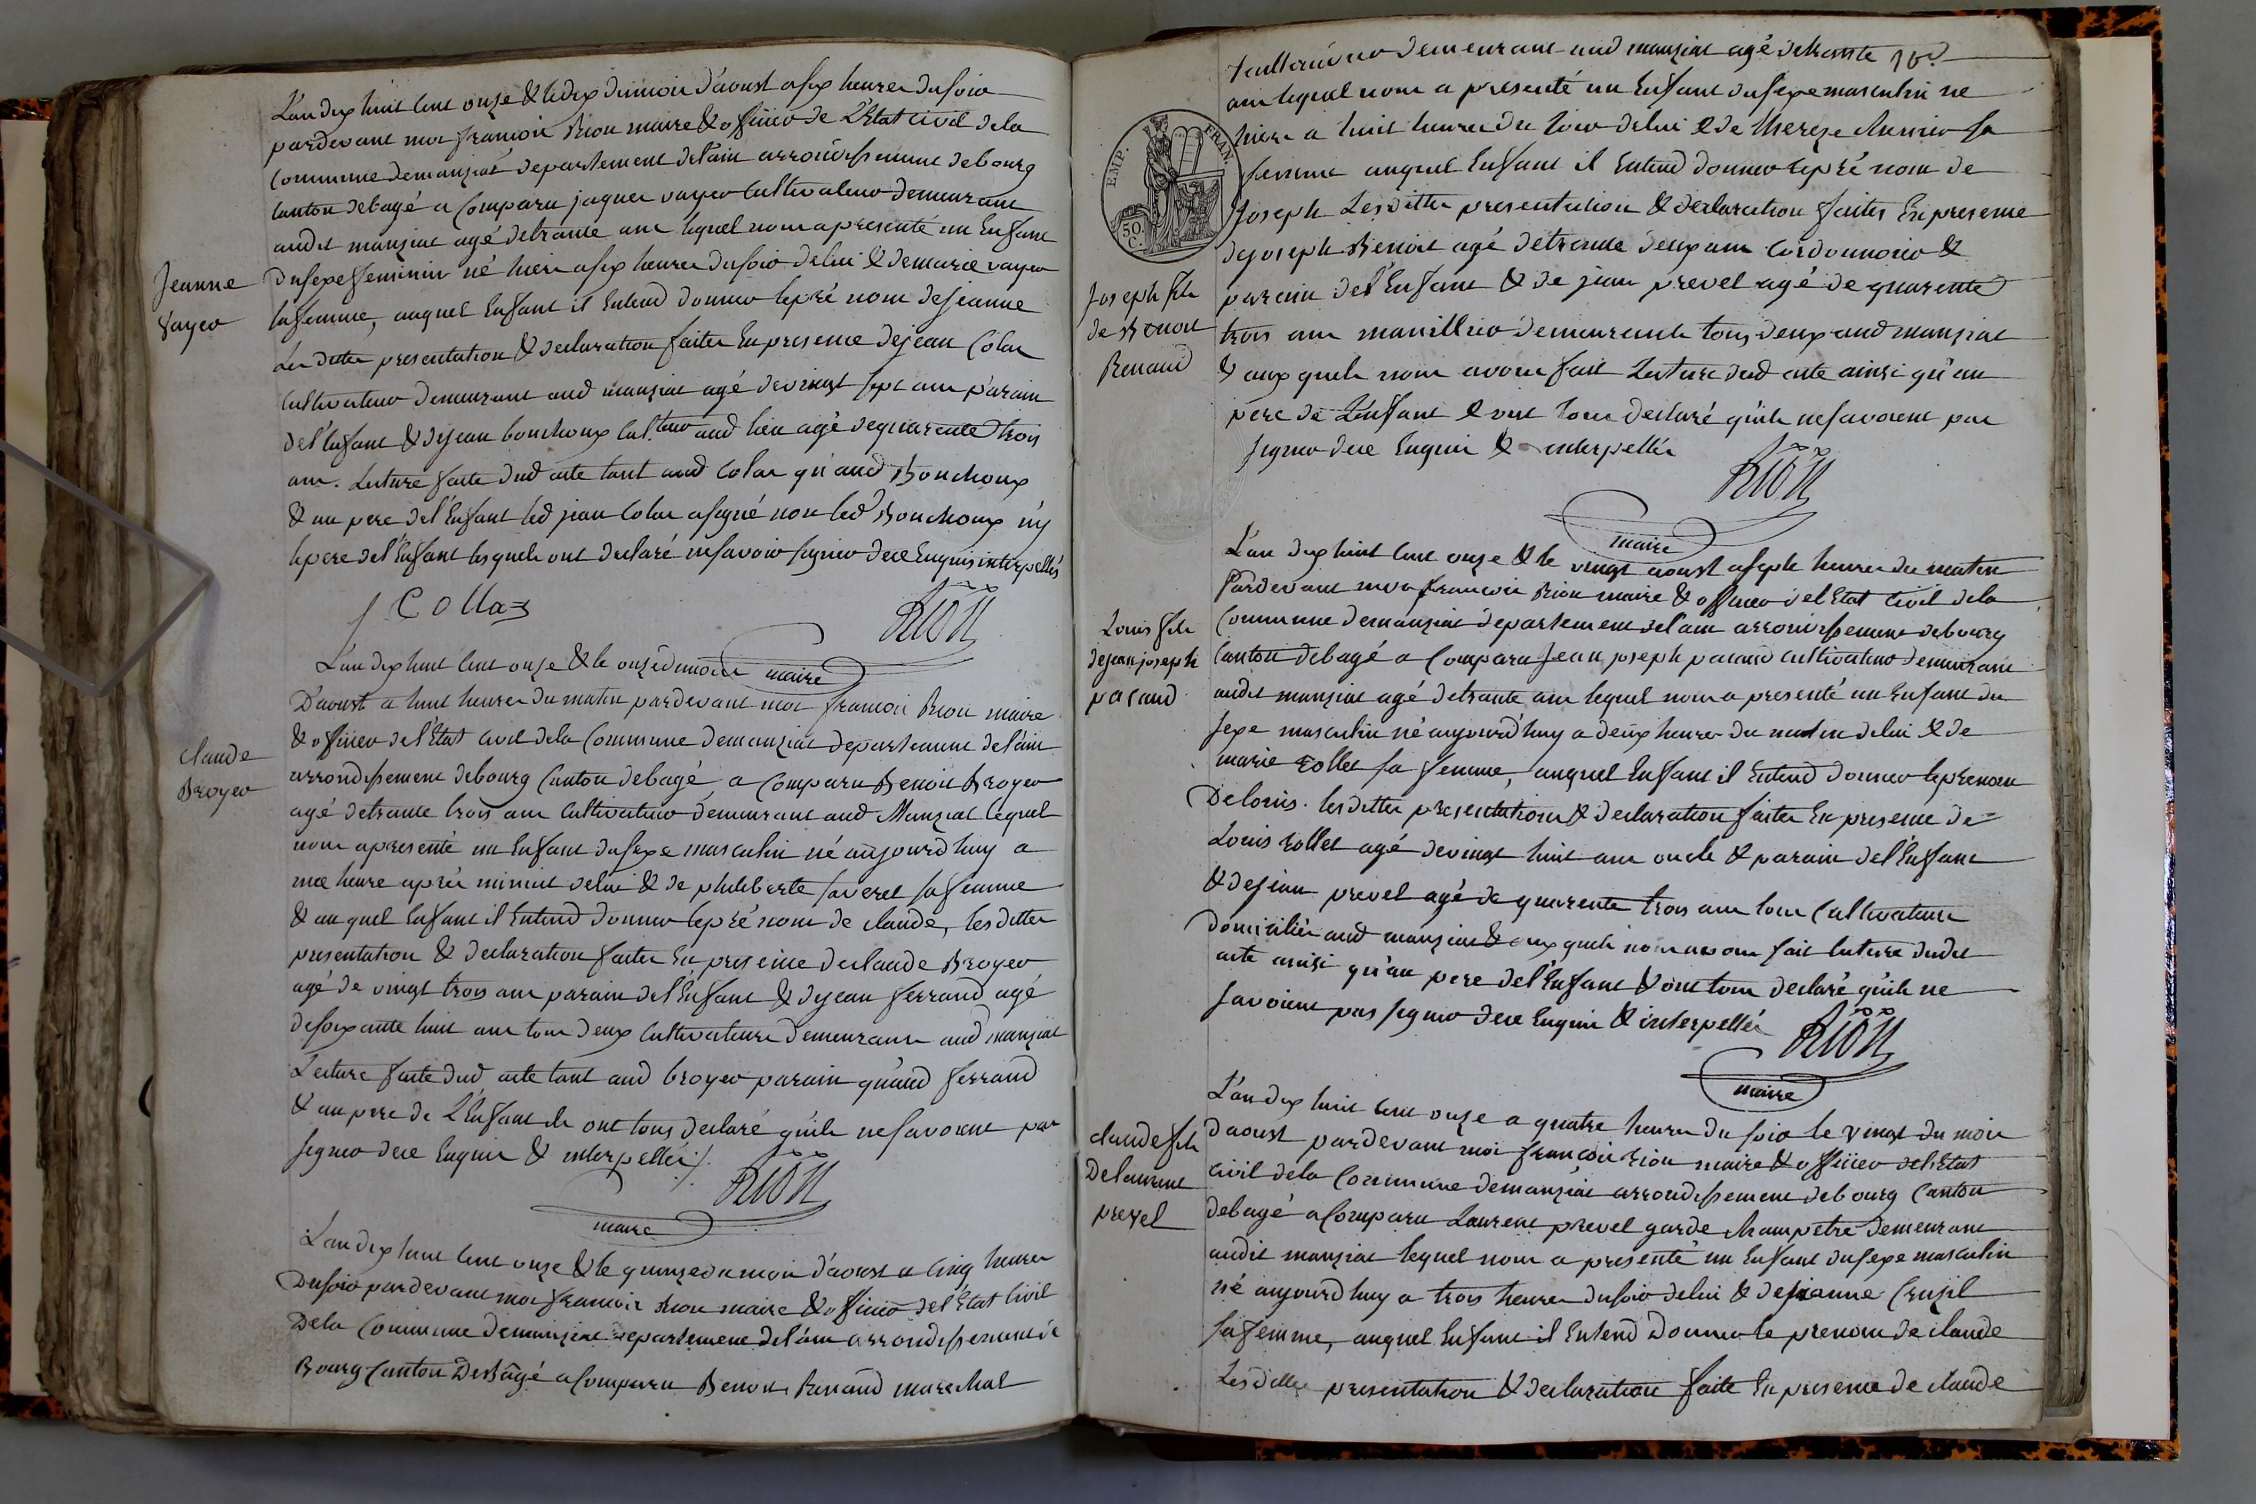 L'an dix huit cent onze & le dix du mois d'aoust a six heures du soir
pardevant moi françois Rion maire & officier de L'Etat civil dela
Commune demanziat departement del'ain arrondissement debourg
Canton debagé a Comparu jaques vayer Cultivateur demeurant
audit manziat agé detrante ans lequel nous apresenté un Enfant
Jeanne
vayer
du sexe feminin né hier a six heures du soir delui & demarie vayer
sa femme, auquel Enfant il Entend donner lepré nom dejeanne
Les dittes presentation & declaration faites En presence dejean Colas
Cultivateur demeurant aud manziat agé devingt sept ans parain
del'Enfant & dejean bouchoux Cult.teur aud lieu agé dequarente trois
ans. Lecture faite dud acte tant aud Colas qu'aud Bouchoux
& au pere del'Enfant led jean Colas asigné non led Bouchoux ny
lepere del'Enfant lesquels ont declaré nesavoir signer dece Enquis interpellés
j Collas
Riön
maire
L'an dix huit cent onze & le onze du mois
D'aoust a huit heures du matin pardevant moi françois Rion maire
& officier del'Etat civil dela Commune demanziat departement del'ain
Claude
Broyer
arrondissement debourg Canton debagé a Comparu Benoit Broyer
agé detrante trois ans Cultivateur demeurant aud Manziat lequel
nous apresenté un Enfant dusexe masculin né aujourd'huy a
une heure aprés minuit delui & de philiberte faveret sa femme
& au quel Enfant il Entend donner lepré nom de claude, les dittes
presentation & declaration faites En presence declaude Broyer
agé de vingt trois ans parain del'Enfant & dejean ferrand agé
desoixante huit ans tous deux Cultivateurs demeurans aud manziat
Lecture faite dud acte tant aud broyer parain qu'aud ferrand
& au pere de L'Enfant ils ont tous declaré qu'ils nesavoient pas
signer dece Enquis & interpellés
Riön
maire
L'an dix huit cent onze & le quinze du mois d'aoust a cinq heures
Du soir pardevant moi francois Rion maire & officier del'Etat Civil
Dela Commune demanziat departement del'ain arrondissement de
Bourg Canton De Bâgé a Comparu Benoit Renaud marechal
taillandier demeurant aud manziat agé detrante
ans lequel nous a presenté un Enfant dusexe masculin né
EMP. FRAN.
50. C.
hier a huit heures du soir delui & de Thereze sa
femme auquel Enfant il Entend donner lepré nom de
Joseph Lesdittes presentation & declaration faites En presence
dejoseph Benoit agé detrente deux ans Cordonnier &
Joseph fils
de Benoit
Renaud
parain del'Enfant & de jean prevel agé de quarente
trois ans manillier demeurants tous deux aud manziat
& aux quels nous avons fait Lecture dud acte ainsi qu'au
pere de L'Enfant & ont tous declaré qu'ils nesavoient pas
signer dece Enquis & interpellés
Riön
maire
L'an dix huit cent onze & le vingt aoust a sept heures du matin
Pardevant moi françois Rion maire & officier del'Etat Civil dela
Louis fils
dejean joseph
pacaud
Commune demanziat departement del'ain arrondissement debourg
Canton debagé a Comparu Jean joseph pacaud cultivateur demeurant
audit manziat agé detrante ans lequel nous a presenté un Enfant du
sexe masculin né aujourd'huy a deux heures du matin delui & de
marie rollet sa femme, auquel Enfant il Entend donner leprenom
Delouis. lesdittes presentation & declaration faites En presence de
Louis rollet agé devingt huit ans oncle & parain del'Enfant
& dejean prevel agé de quarente trois ans tous Cultivateurs
domiciliés aud manziat & aux quels nous avons fait lecture dudit
acte ainsi qu'au pere del'Enfant & ont tous declaré qu'ils ne
savoient pas signer dece Enquis & interpellés
Riön
maire
L'an dix huit cent onze a quatre heures du soir le vingt du mois
Claude fils
De laurent
prevel
daoust pardevant moi françois rion maire & officier del'Etat
civil dela Commune demanziat arrondissement debourg Canton
debagé a Comparu Laurent prevel garde champetre demeurant
audit manziat lequel nous a presenté un Enfant dusexe masculin
né aujourd'huy a trois heures du soir delui & dejeanne Cruzil
sa femme, auquel Enfant il Entend Donner le prenom de claude
Lesdittes presentation & declaration faite En presence de claude